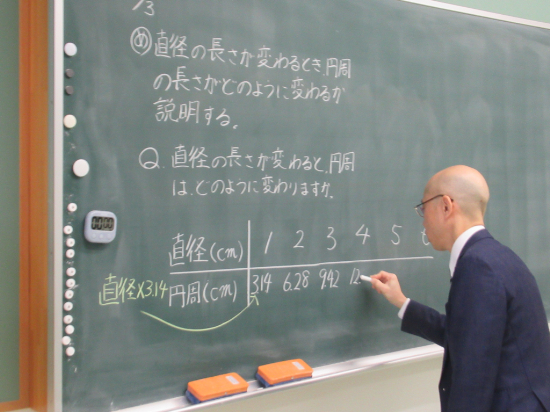 13
め 直径の長さが変わるとき、円周
の長さがどのように変わるか
説明する。
Q. 直径の長さが変わると、円周
は、どのように変わりますか。
直径(cm) 1 2 3 4 5
直径×3.14 円周(cm) 3.14 6.28 9.42 12